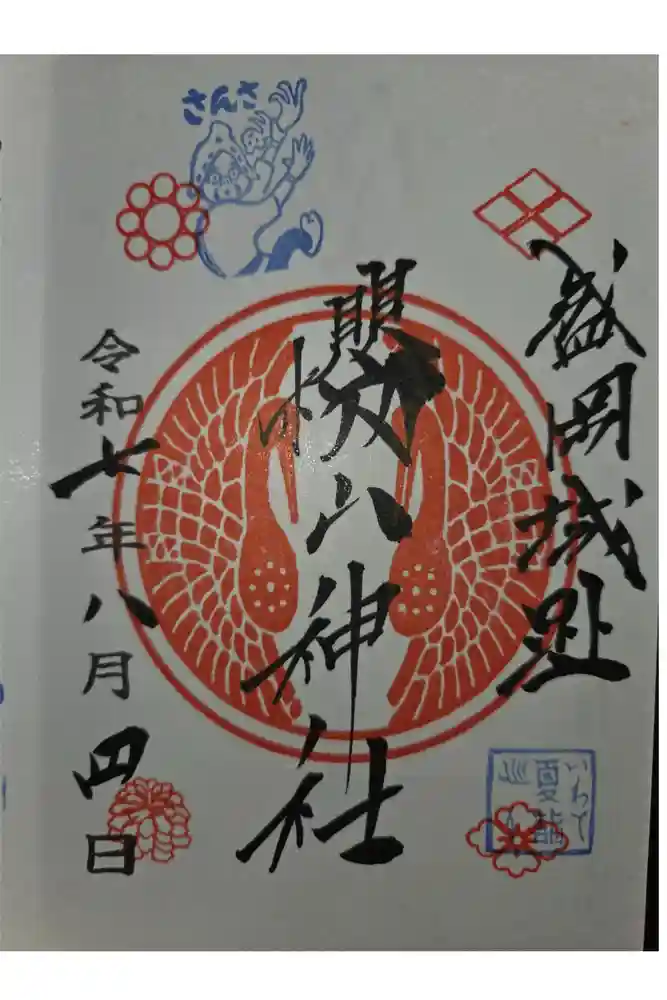 さんさ
盛岡城趾
櫻山神社
令和七年八月四日
いわて
夏詣
巡り